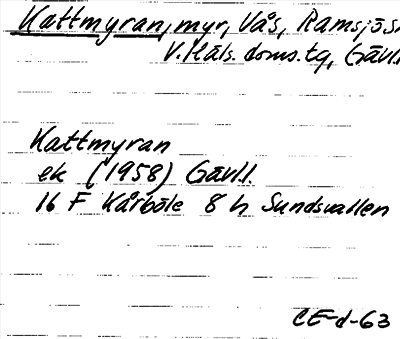 Kattmyran, myr, Vås, Ramsjö sn
V. Häls. doms. tg, Gävl.
Kattmyran
ek (1958) Gävl.l.
16 F Kårböle 8 h Sundsvallen
CE-d-63